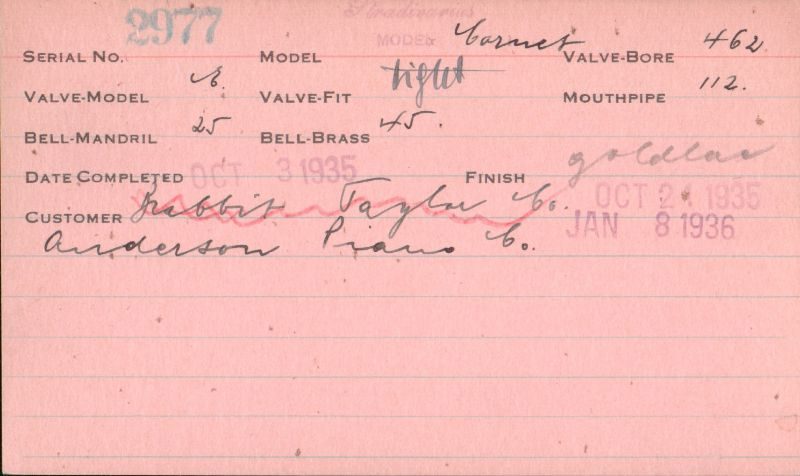 2977
Stradivarius
MODEL
SERIAL NO. MODEL Cornet VALVE-BORE 462
VALVE-MODEL E. VALVE-FIT tight MOUTHPIPE 112.
BELL-MANDRIL 25 BELL-BRASS 45.
DATE COMPLETED OCT 3 1935 FINISH goldlac
CUSTOMER Babbit Taylor Co. OCT 21 1935
JAN 8 1936
Anderson Piano Co.